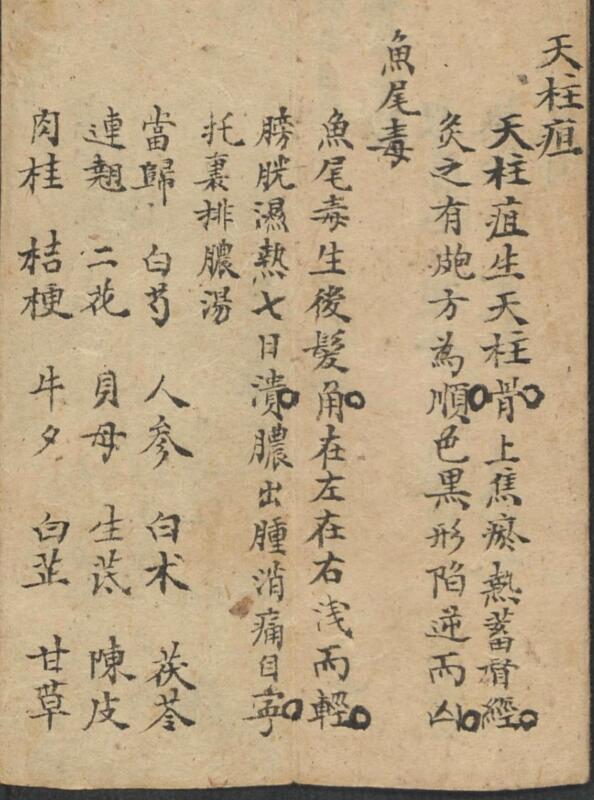 天柱疽
天柱疽生天柱骨上焦瘀熱蓄督經
灸之有皰方為順色黒形陷逆而凶
魚尾毒
魚尾毒生後髮角在左在右浅而輕
膀胱濕熱七日潰膿出腫消痛自寧
托裏排膿湯
當歸 白芍 人參 白术 茯苓
連翹 二花 貝母 生芪 陳皮
肉桂 桔梗 牛夕 白芷 甘草